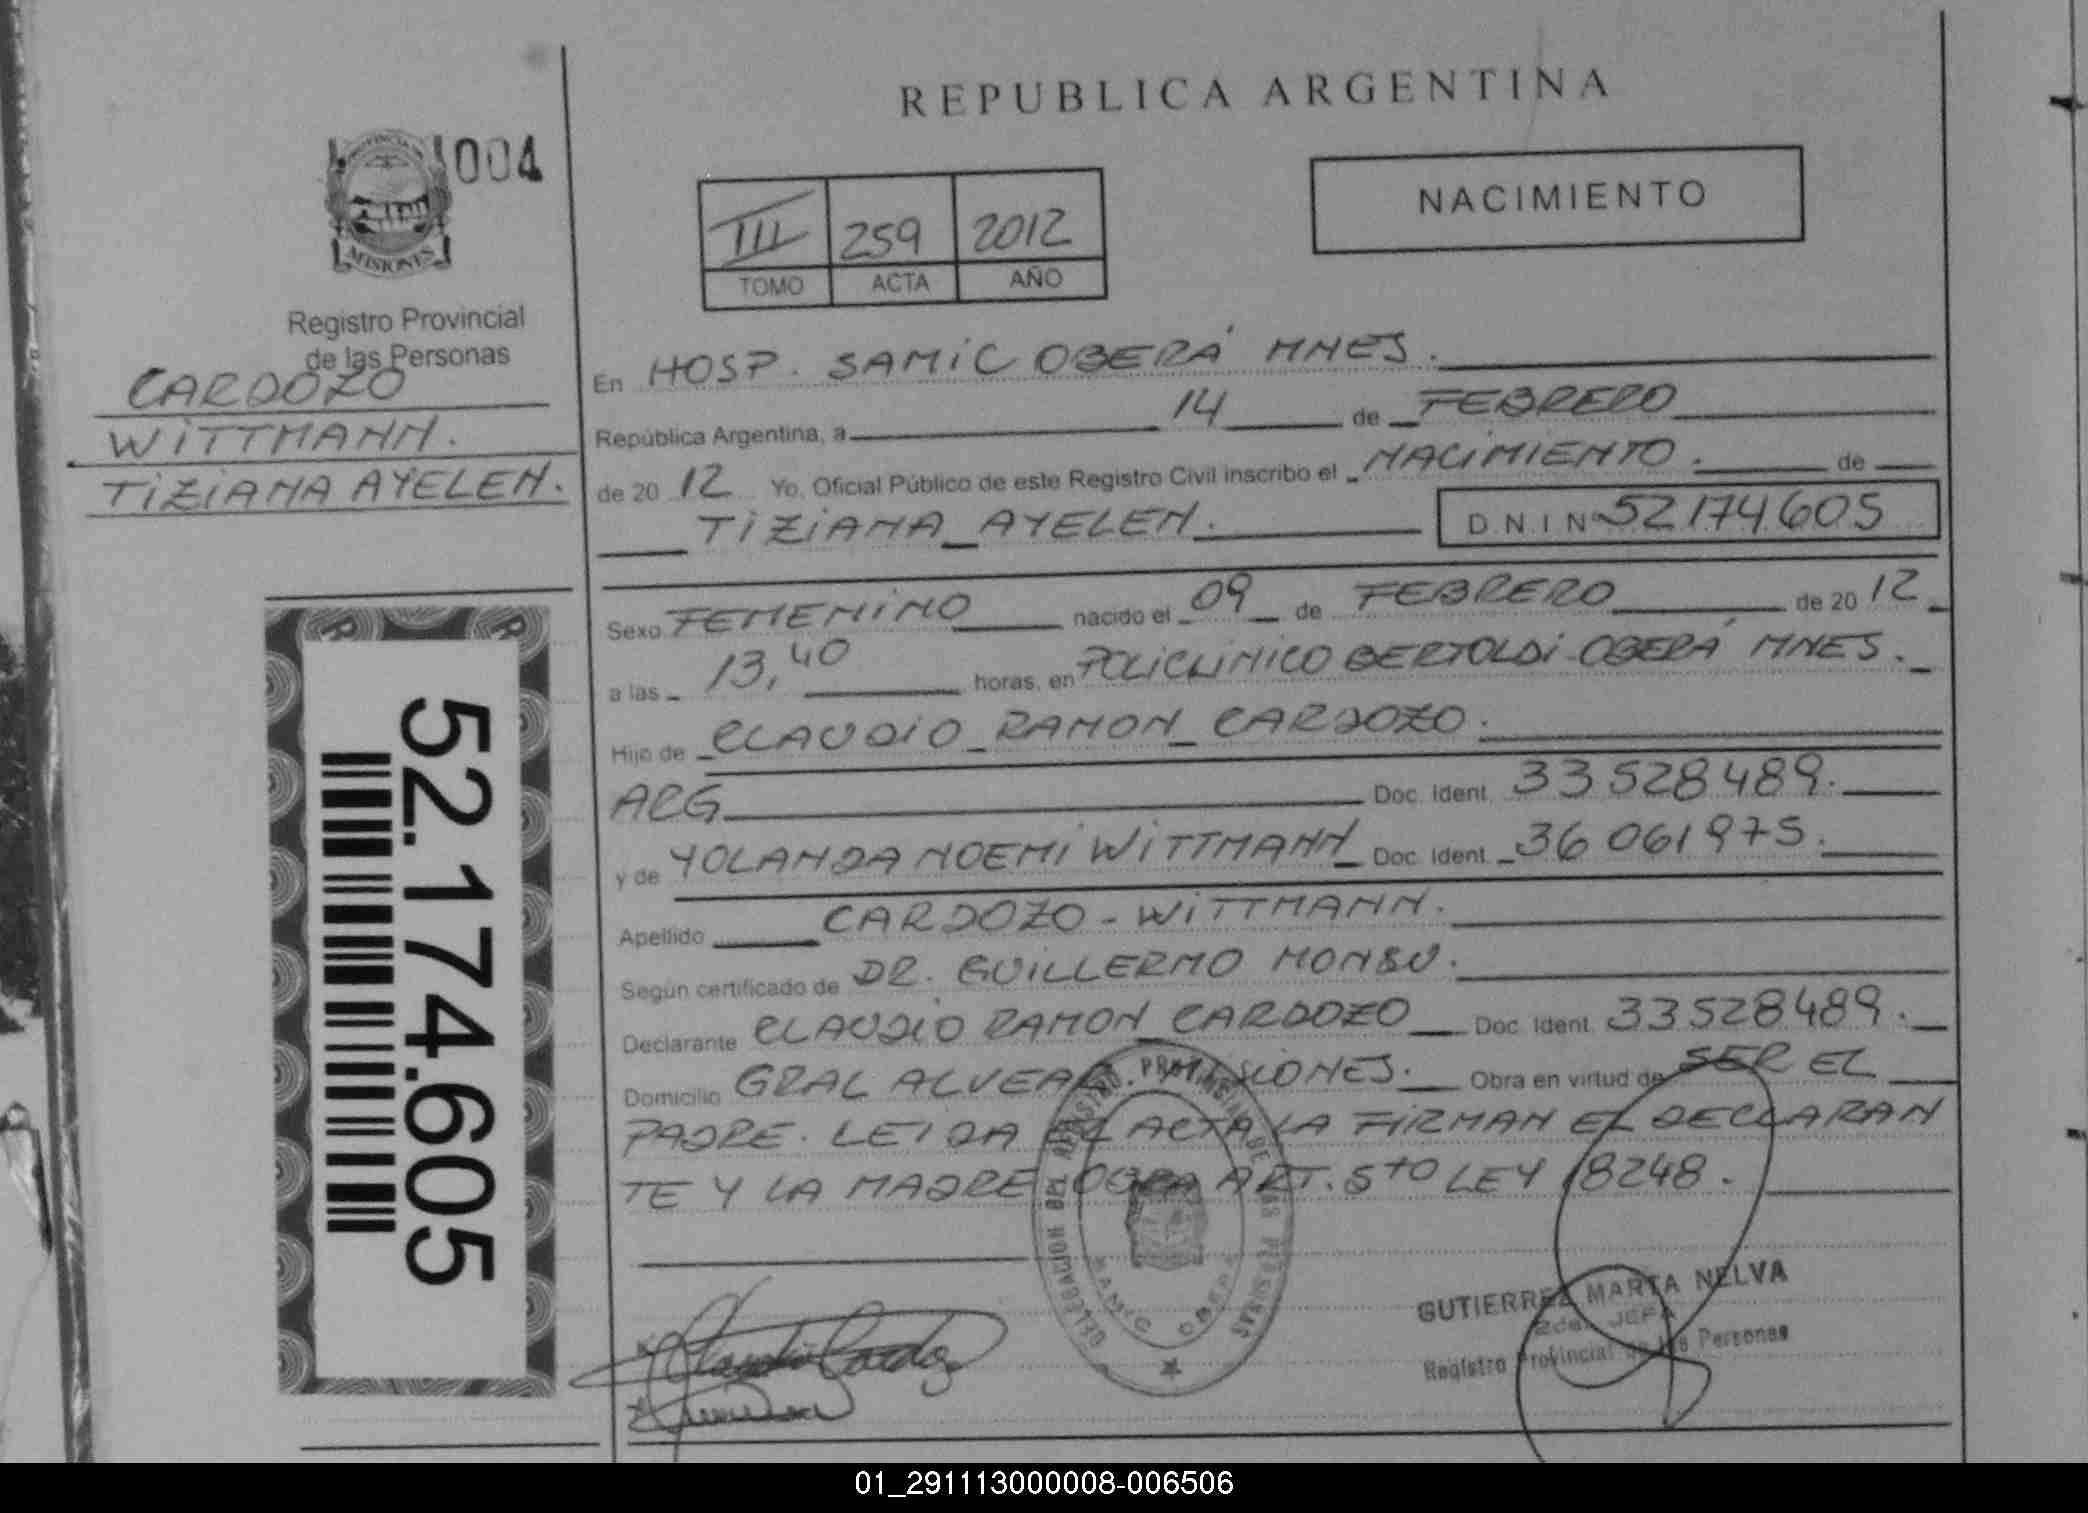 REPUBLICA ARGENTINA
004
MISIONES
Registro Provincial
de las Personas
CARDOZO
WITTMANN.
TIZIANA AYELEN.
III 259 2012
TOMO ACTA AÑO
NACIMIENTO
En HOSP. SAMIC OBERÁ MNES.
República Argentina, a 14 de FEBRERO
de 2012 Yo, Oficial Público de este Registro Civil inscribo el NACIMIENTO. de
TIZIANA AYELEN. D.N.I Nº 52174605
Sexo FEMENINO nacido el 09 de FEBRERO de 2012
a las 13,40 horas, en POLICLINICO BERTOLDI OBERÁ MNES.
Hijo de CLAUDIO RAMON CARDOZO.
ARG Doc. Ident. 33528489.
y de YOLANDA NOEMI WITTMANN Doc. Ident. 36061975.
Apellido CARDOZO - WITTMANN.
Según certificado de DR. GUILLERMO MONBU.
Declarante CLAUDIO RAMON CARDOZO Doc. Ident. 33528489.
Domicilio GRAL ALVEAR. MISIONES. Obra en virtud de SER EL
PADRE. LEIDA EL ACTA LA FIRMAN EL DECLARAN
TE Y LA MADRE. OBRA ART. 5to LEY 18248.
52.174.605
DELEGACION DEL REGISTRO PROVINCIAL DE LAS PERSONAS
SAMIC OBERA
Claudio Cardozo
GUTIERREZ MARTA NELVA
2da. JEFA
Registro Provincial de las Personas
01_291113000008-006506